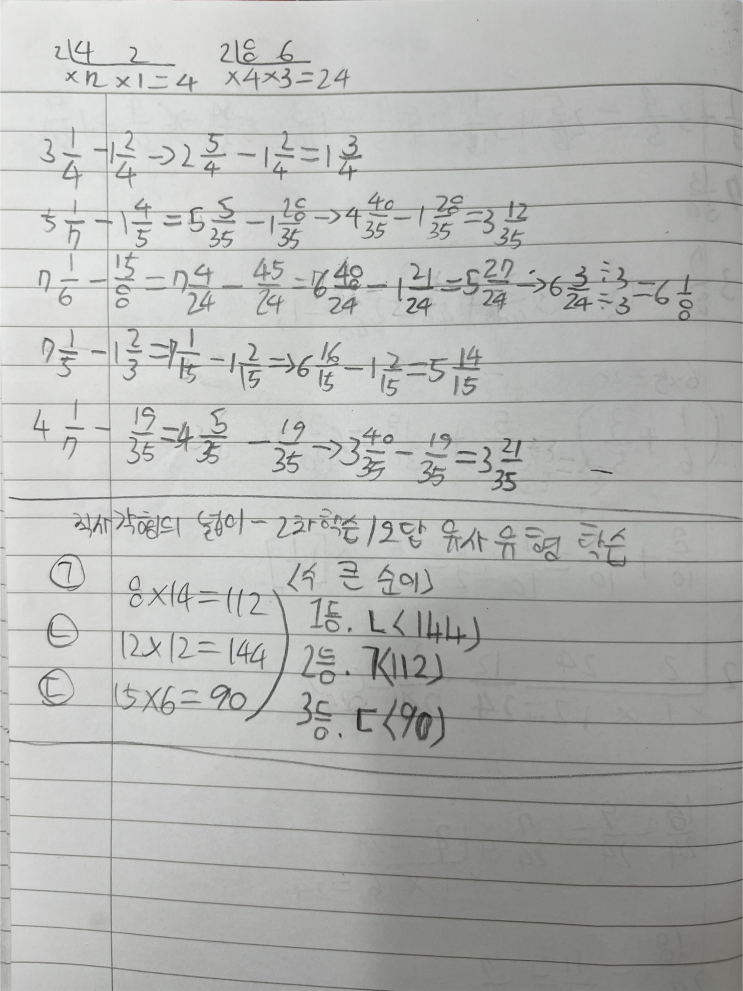 2⌊4 2 2⌊8 6
×2×1=4 ×4×3=24
3 1/4 - 1 2/4 → 2 5/4 - 1 2/4 = 1 3/4
5 1/7 - 1 4/5 = 5 5/35 - 1 28/35 → 4 40/35 - 1 28/35 = 3 12/35
7 1/6 - 15/8 = 7 4/24 - 45/24 = 6 48/24 - 1 21/24 = 5 27/24 → 6 3/24 ÷3/÷3 = 6 1/8
7 1/5 - 1 2/3 = 7 1/15 - 1 2/15 → 6 16/15 - 1 2/15 = 5 14/15
4 1/7 - 19/35 = 4 5/35 - 19/35 → 3 40/35 - 19/35 = 3 21/35 –
직사각형의 넓이 - 2차학습/오답 유사 유형 학습
㉠ 8×14=112 <수 큰 순이>
㉡ 12×12=144 1등. ㄴ<144>
㉢ 15×6=90 2등. ㄱ<112>
3등. ㄷ<90>